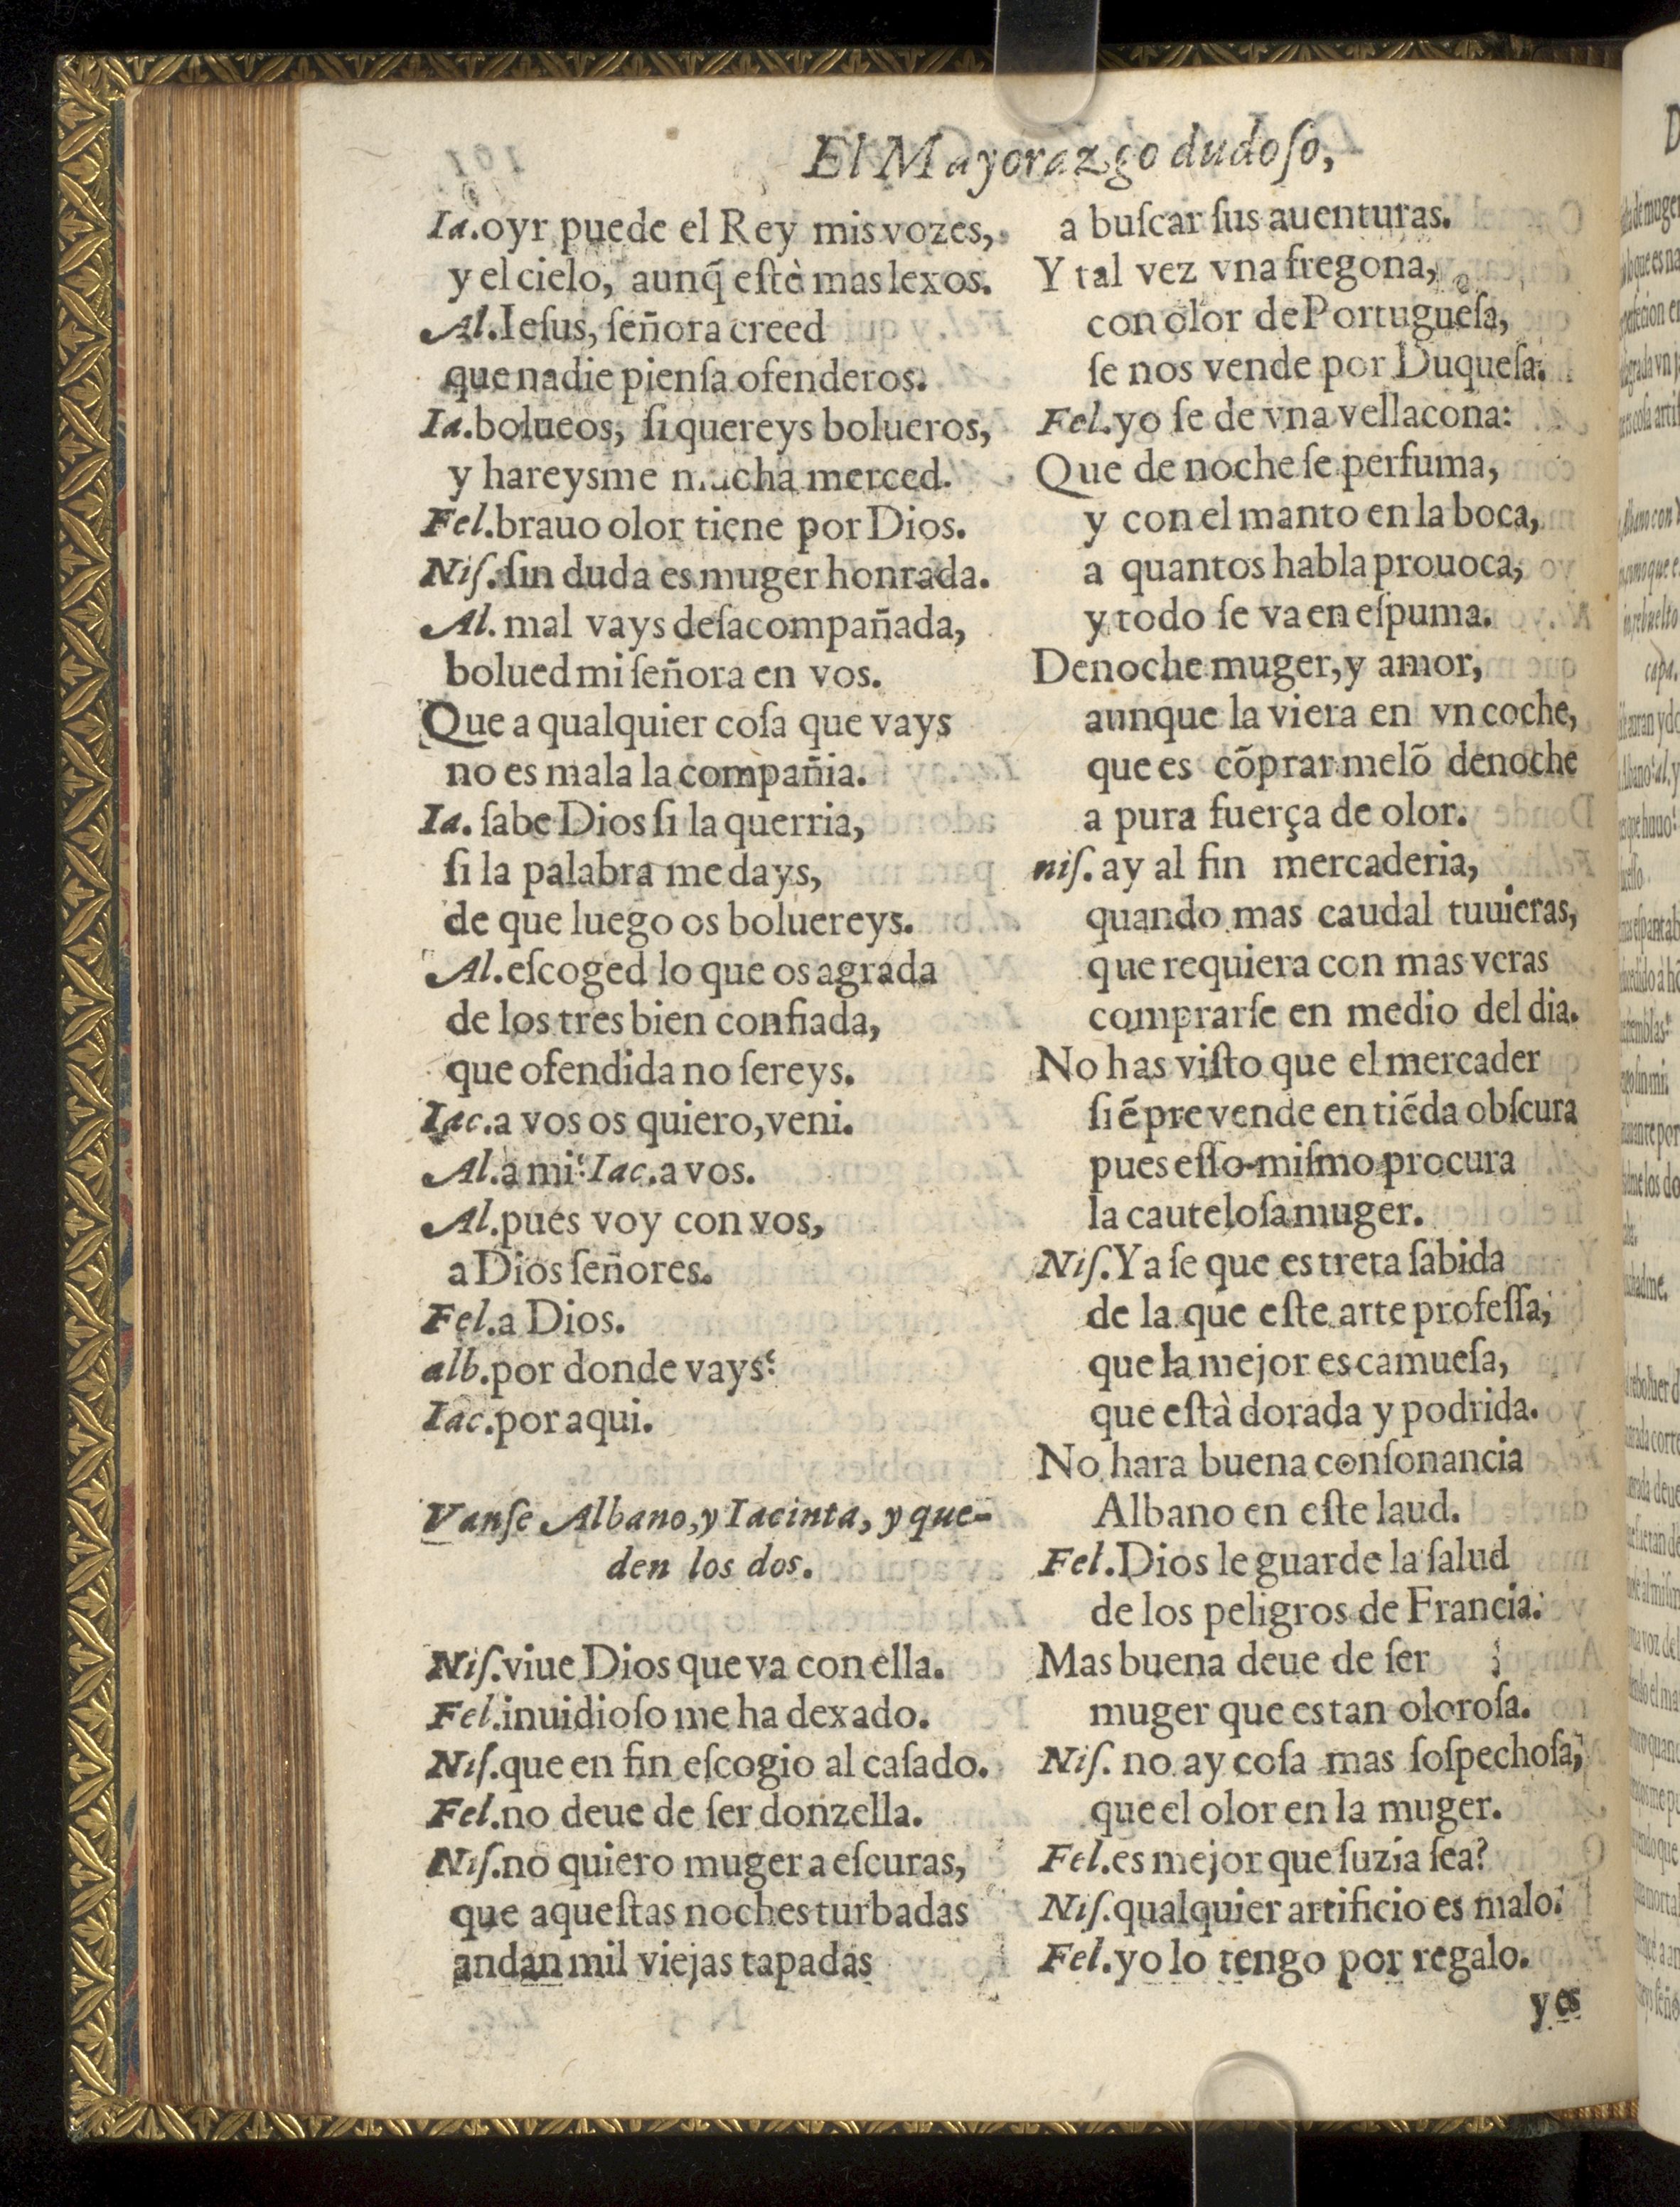 El Mayorazgo dudoſo,
Ia.oyr puede el Rey mis vozes,
y el cielo, aunq̃ eſtè mas lexos.
Al.Ieſus, ſeñora creed
que nadie pienſa ofenderos.
Ia.bolueos, ſi quereys bolueros,
y hareysme mucha merced.
Fel.brauo olor tiene por Dios.
Niſ.ſin duda es muger honrada.
Al. mal vays deſacompañada,
bolued mi ſeñora en vos.
Que a qualquier coſa que vays
no es mala la compañia.
Ia. ſabe Dios ſi la querria,
ſi la palabra me days,
de que luego os boluereys.
Al.eſcoged lo que os agrada
de los tres bien confiada,
que ofendida no ſereys.
Iac.a vos os quiero, veni.
Al.a mi? Iac.a vos.
Al.pues voy con vos,
a Dios ſeñores.
Fel.a Dios.
alb.por donde vays?
Iac.por aqui.
Vanſe Albano, y Iacinta, y que-
den los dos.
Niſ.viue Dios que va con ella.
Fel.inuidioſo me ha dexado.
Niſ.que en fin eſcogio al caſado.
Fel.no deue de ſer donzella.
Niſ.no quiero muger a eſcuras,
que aqueſtas noches turbadas
andan mil viejas tapadas
a buſcar ſus auenturas.
Y tal vez vna fregona,
con olor de Portugueſa,
ſe nos vende por Duqueſa.
Fel.yo ſe de vna vellacona:
Que de noche ſe perfuma,
y con el manto en la boca,
a quantos habla prouoca,
y todo ſe va en eſpuma.
De noche muger, y amor,
aunque la viera en vn coche,
que es cõprar melõ de noche
a pura fuerça de olor.
niſ. ay al fin mercaderia,
quando mas caudal tuuieras,
que requiera con mas veras
comprarſe en medio del dia.
No has viſto que el mercader
ſiẽpre vende en tiẽda obſcura
pues eſſo miſmo procura
la cauteloſa muger.
Niſ.Ya ſe que es treta ſabida
de la que eſte arte profeſſa,
que la mejor es camueſa,
que eſtà dorada y podrida.
No hara buena conſonancia
Albano en eſte laud.
Fel.Dios le guarde la ſalud
de los peligros de Francia.
Mas buena deue de ſer
muger que es tan oloroſa.
Niſ. no ay coſa mas ſoſpechoſa,
que el olor en la muger.
Fel.es mejor que ſuzia ſea?
Niſ.qualquier artificio es malo.
Fel.yo lo tengo por regalo.
y es